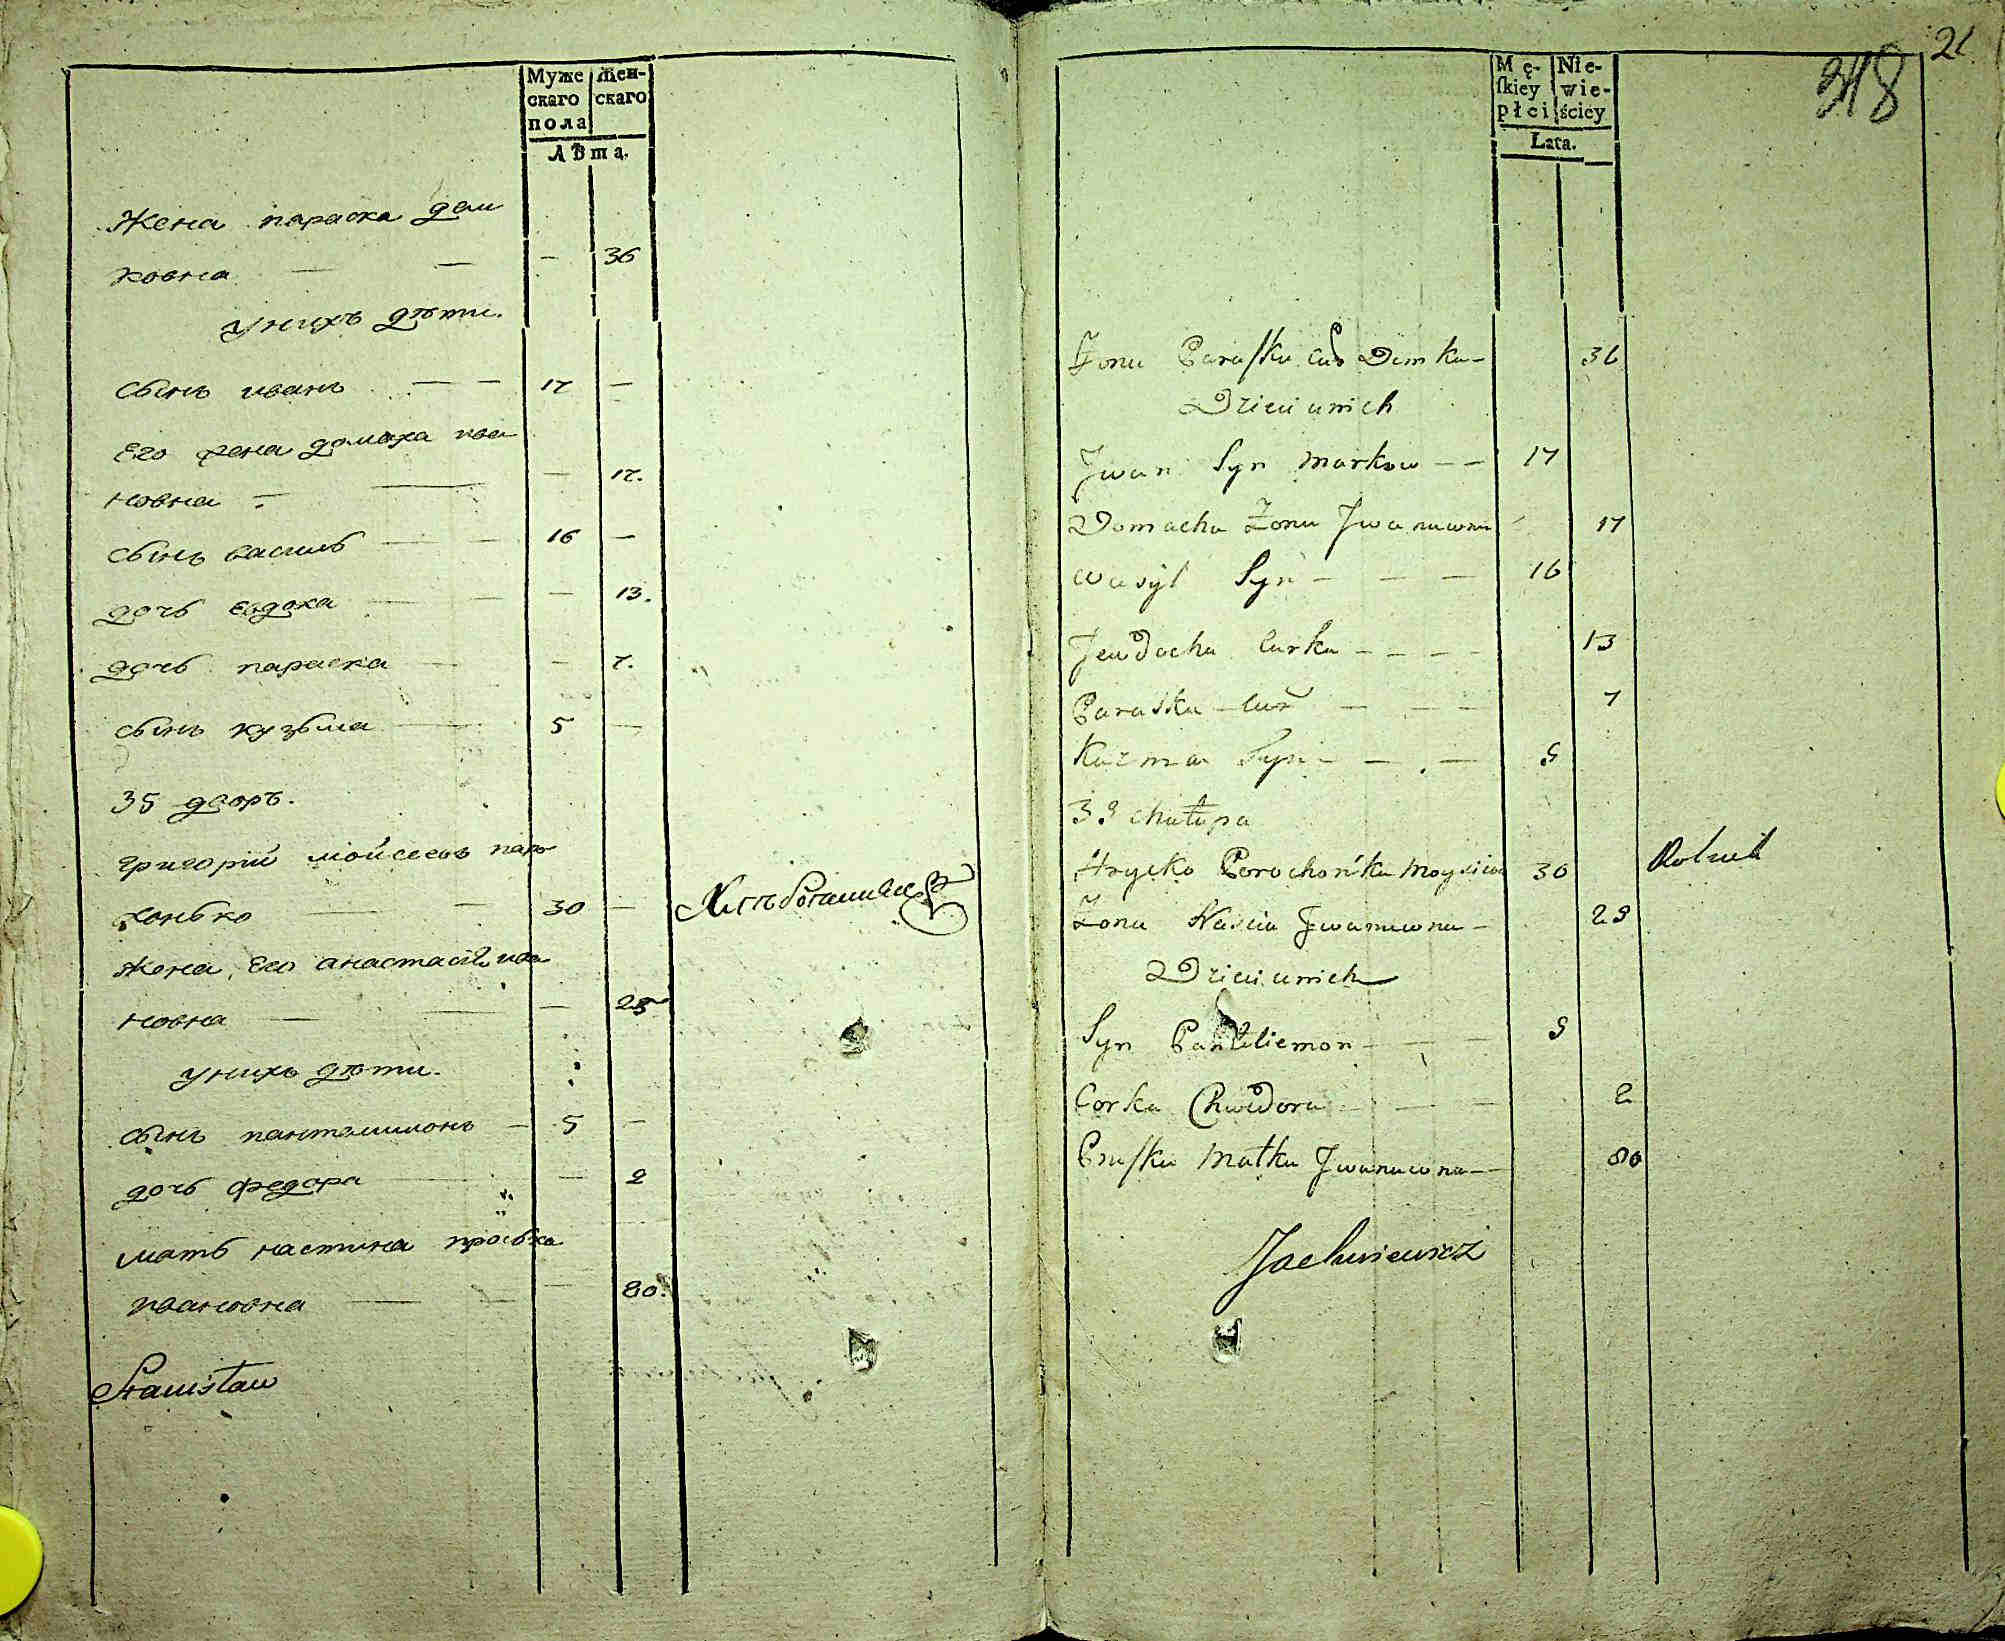 Муже
скаго
пола
Жен-
скаго
Лѣта.
Жена параска дем
ковна — — — 36
унихъ дѣти.
сынъ иванъ — — 17 —
Его жена домаха ива
новна — — — 17.
сынъ василь — — 16 —
дочь Евдоха — — — 13.
дочь параска — — 7.
сынъ кузьма — 5 —
35 дворъ.
григорій мойсеевъ паро
хонько — — 30 —
Хлѣбопашецъ
жена Его анастасія ива
новна — — — 25
унихъ дѣти.
сынъ пантелимонъ — 5 —
дочь федора — — 2
мать настина проська
ивановна — — — 80.
Stanisław
21
318
Mę-
ſkiey
płci
Nie-
wie-
ściey
Lata.
Żona Paraſka Cur Demka — 36
Dzieci unich
Jwan Syn Markow — — 17
Domacha Żona Jwanawna 17
Wasyl Syn — — — 16
Jewdocha Curka — — — — 13
Paraska Cur — — — 7
Kuzma Syn — — . — 5
35 Chałupa
Hrycko Porochońka Moysiiow 30 Rolnik
Żona Naścia Jwanawna — 25
Dzieci unich
Syn Panteliemon — — — 5
Corka Chwedora — — — 2
Praſka Matka Jwanawna — — 80
Jachniewicz